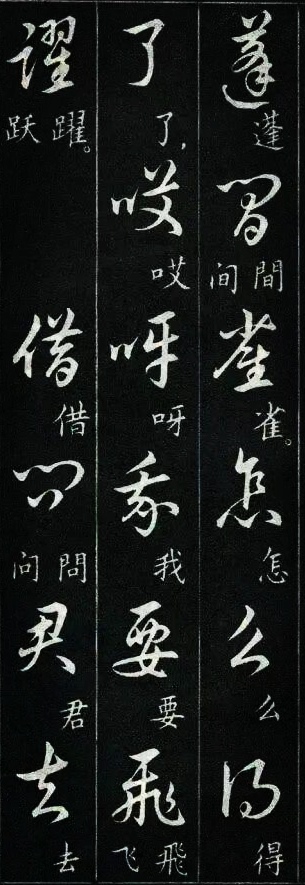 蓬間雀怎么得
蓬 間间 雀。 怎 么 得
了哎呀我要飛
了, 哎 呀 我 要 飛飞
躍借問君去
躍。跃 借 問问 君 去